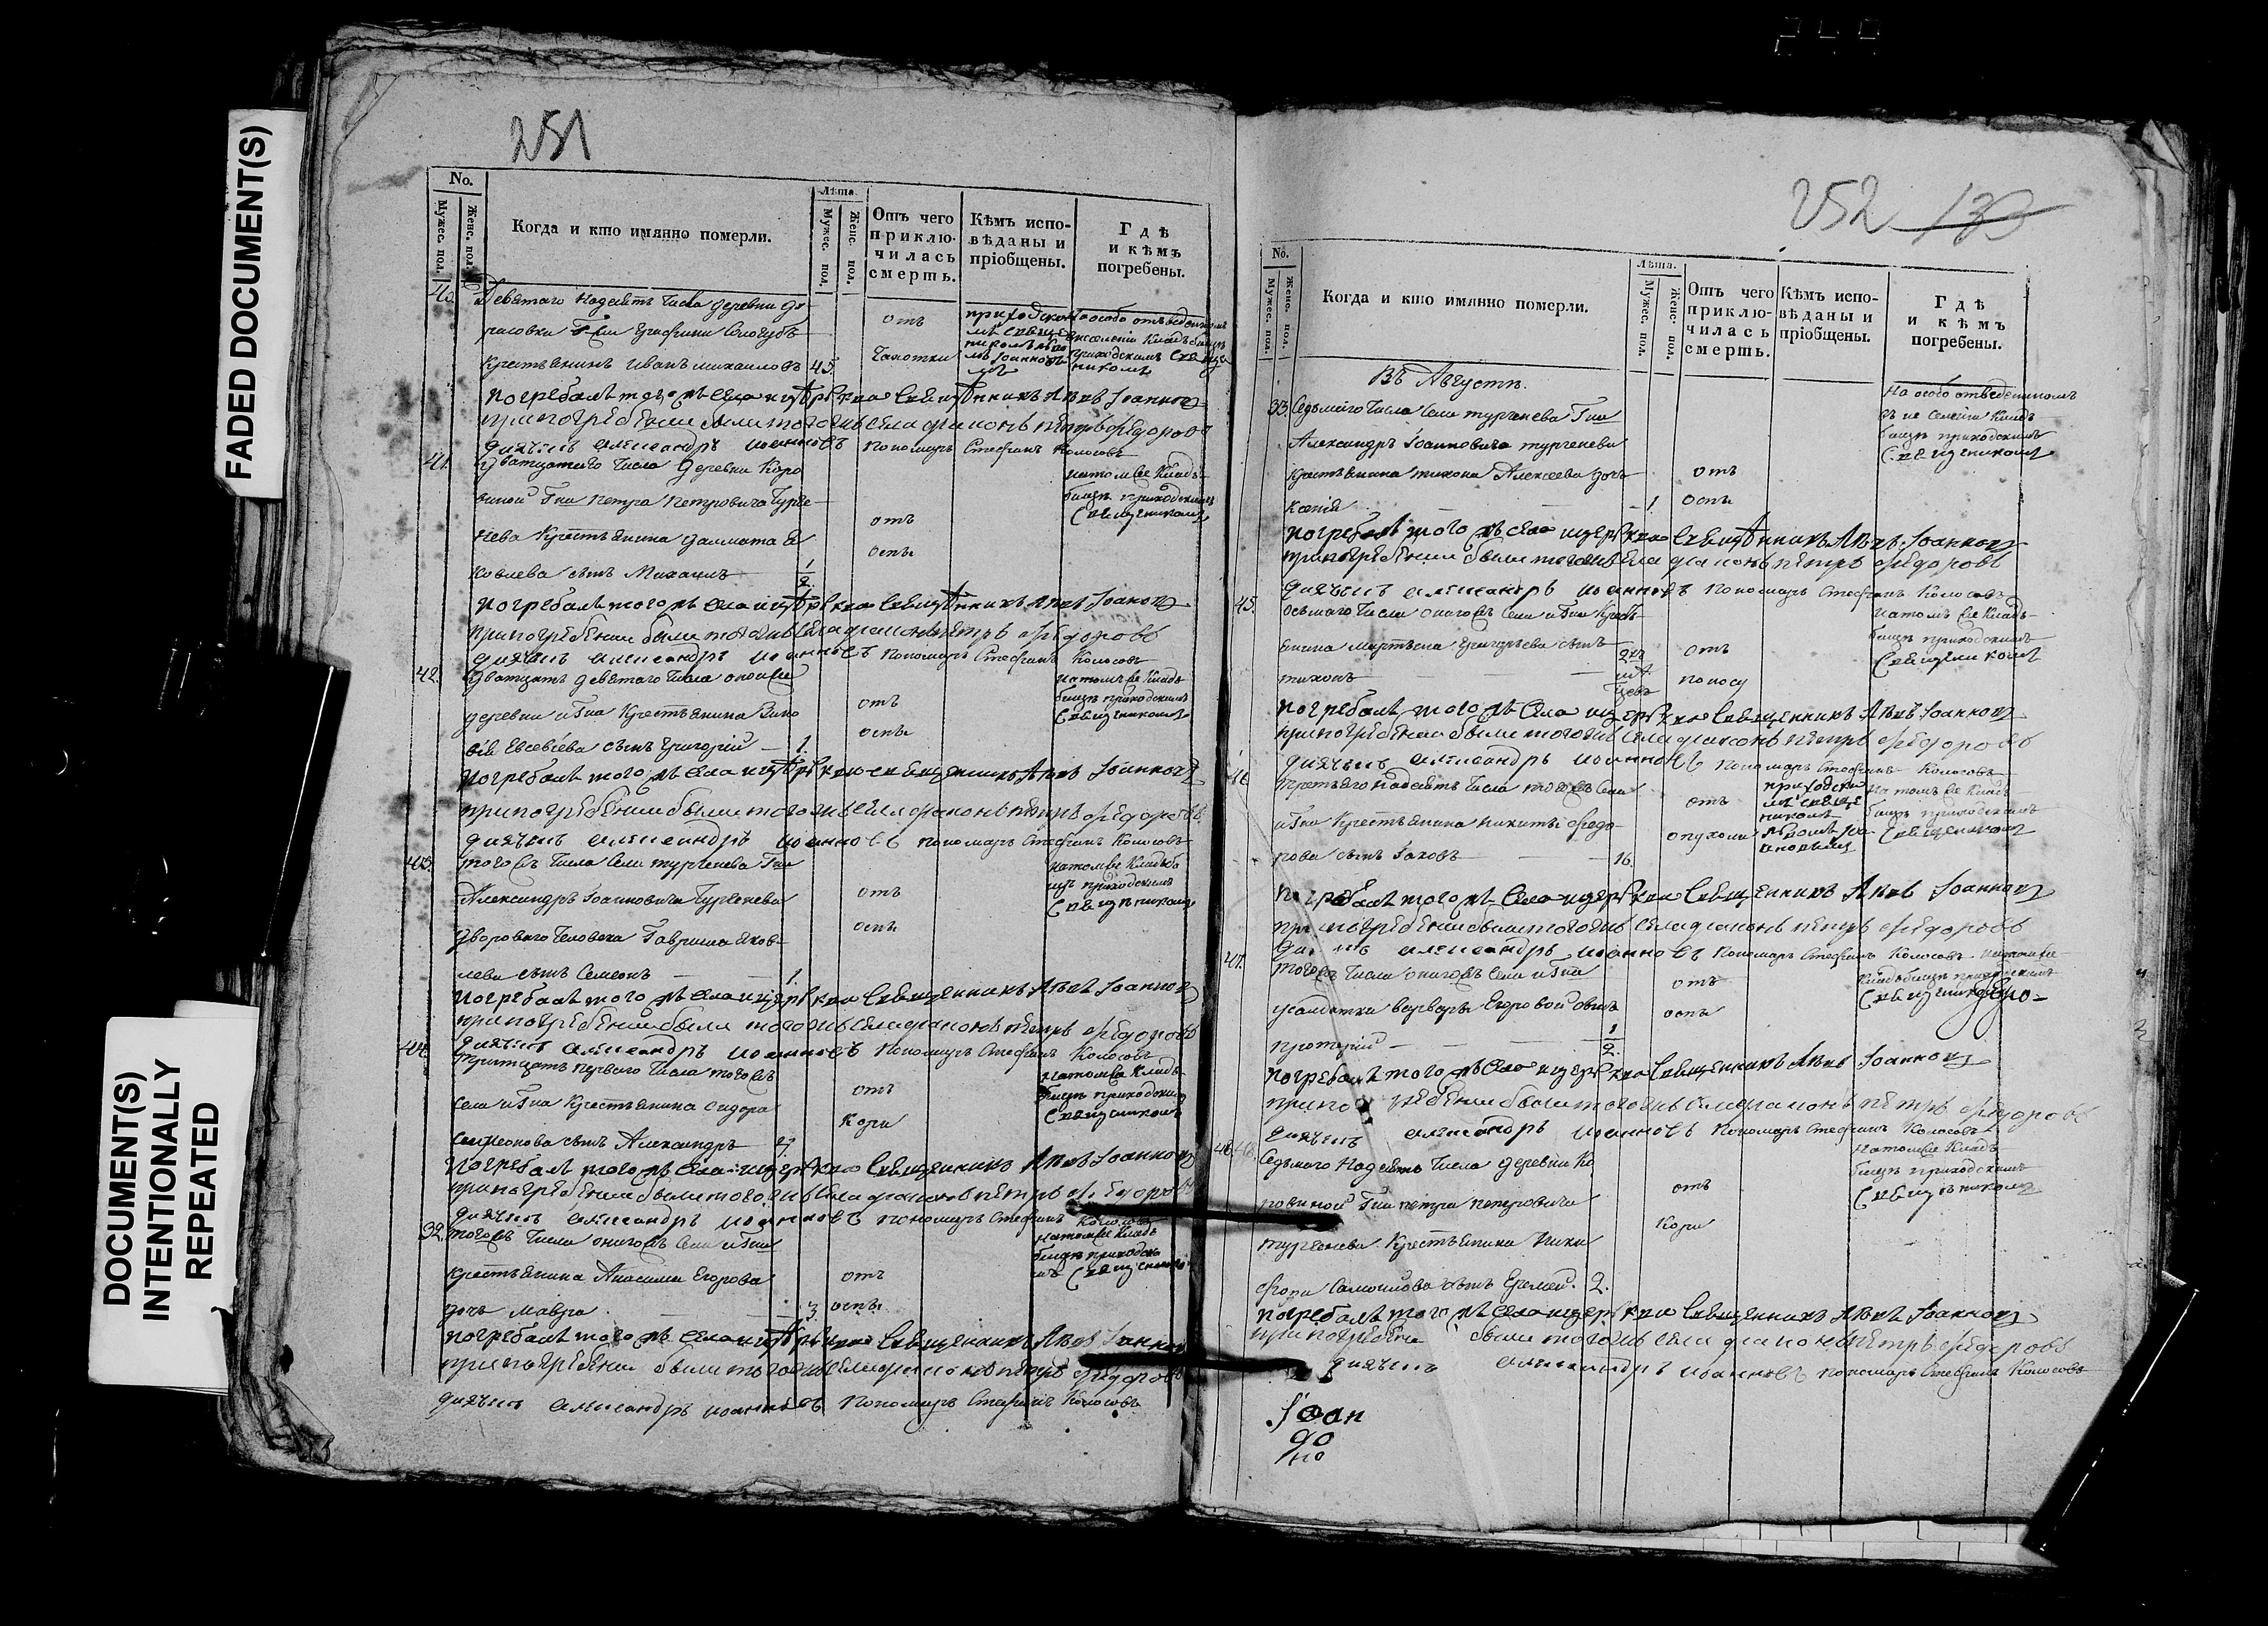 FADED DOCUMENT(S)
DOCUMENT(S)
INTENTIONALLY
REPEATED
251
No.
Мужес. пол.
Женс. пол.
Когда и кто имянно померли.
Лѣта.
Мужес. пол.
Женс. пол.
Отъ чего
приклю-
чилась
смерть.
Кѣмъ испо-
вѣданы и
пріобщены.
Гдѣ
и кѣмъ
погребены.
40.
Девятаго надесять числа деревни
Гжи Сологубъ
крестьянинъ Иванъ Михаиловъ 45.
отъ
чахотки
погребалъ того жъ села церкви священникъ Іоанновъ
при погребении были того жъ села диаконъ петръ федоровъ
дьячекъ александръ иоанновъ пономарь Стефанъ Колосовъ
41.
Дватцатаго числа деревни Коро
виной Гна Петра Петровича Турге-
нева крестьянина
сынъ Михаилъ 1/2
отъ
оспы
на томъ же клад-
бищѣ приходскимъ
священникомъ
погребалъ того жъ села церкви священникъ Іоанновъ
при погребении были того жъ села диаконъ петръ федоровъ
дьячекъ александръ иоанновъ пономарь Стефанъ Колосовъ
42.
Дватцать девятаго числа оной же
деревни и Гна крестьянина
Евсевіева сынъ Григорій 1.
отъ
оспы
на томъ же клад
бищѣ приходскимъ
священникомъ
погребалъ того жъ села церкви священникъ Іоанновъ
при погребении были того жъ села диаконъ петръ федоровъ
дьячекъ александръ иоанновъ пономарь Стефанъ Колосовъ
43.
того жъ числа села тургенева Гна
Александръ Іоанновича Тургенева
дворового человека Гаврила Яков-
лева сынъ Семеонъ 1.
отъ
оспы
на томъ же кладьби
щѣ приходскимъ
священникомъ
погребалъ того жъ села церкви священникъ Іоанновъ
при погребении были того жъ села диаконъ петръ федоровъ
дьячекъ александръ иоанновъ пономарь Стефанъ Колосовъ
44.
тритцать перваго числа того жъ
села и Гна крестьянина Сидора
сынъ Александръ
отъ
кори
на томъ же клад-
бищѣ приходскимъ
священникомъ
погребалъ того жъ села церкви священникъ Іоанновъ
при погребении были того жъ села диаконъ петръ федоровъ
дьячекъ александръ иоанновъ пономарь Стефанъ Колосовъ
32.
того жъ числа оного жъ села и Гна
крестьянина Анисима Егорова
дочь Мавра 3
отъ
оспы
на томъ же клад
погребалъ того жъ села церкви священникъ Іоанновъ
при погребении были того жъ села диаконъ петръ федоровъ
дьячекъ александръ иоанновъ пономарь Стефанъ Колосовъ
252
No.
Мужес. пол.
Женс. пол.
Когда и кто имянно померли.
Лѣта.
Мужес. пол.
Женс. пол.
Отъ чего
приклю-
чилась
смерть.
Кѣмъ испо-
вѣданы и
пріобщены.
Гдѣ
и кѣмъ
погребены.
Въ Августѣ.
33.
Седьмаго числа села тургенева Гна
Александръ Іоанновича тургенева
крестьянина тихона Алексеева дочь
Ксенія 1.
отъ
оспы
На особо отведенномъ
бищѣ приходскимъ
священникомъ
погребалъ того жъ села церкви священникъ Іоанновъ
при погребении были того жъ села диаконъ петръ федоровъ
дьячекъ александръ иоанновъ пономарь Стефанъ Колосовъ
45.
осьмаго числа оного жъ села и Гна кресть-
янина мартына Григорьева сынъ
тихонъ
отъ
поносу
на томъ же клад-
бищѣ приходскимъ
священникомъ
погребалъ того жъ села церкви священникъ Іоанновъ
при погребении были того жъ села диаконъ петръ федоровъ
дьячекъ александръ иоанновъ пономарь Стефанъ Колосовъ
46.
третьяго надесять числа того жъ села
и Гна крестьянина никиты федо-
рова сынъ Іаковъ 16.
отъ
опухоли
на томъ же клад-
бищѣ приходскимъ
священникомъ
погребалъ того жъ села церкви священникъ Іоанновъ
при погребении были того жъ села диаконъ петръ федоровъ
александръ иоанновъ пономарь Стефанъ Колосовъ
47.
того жъ числа оного жъ села и Гна
солдатки варвары Егоровой сынъ
1/2
отъ
оспы
погребалъ того жъ села церкви священникъ Іоанновъ
при погребении были того жъ села диаконъ петръ федоровъ
дьячекъ александръ иоанновъ пономарь Стефанъ Колосовъ
48.
Седьмаго надесять числа деревни Ко
ровиной Гна петра петровича
тургенева крестьянина Ники
фора Самоилова сынъ Еремей. 2.
отъ
кори
на томъ же клад-
бищѣ приходскимъ
священникомъ
погребалъ того жъ села церкви священникъ Іоанновъ
при погребении были того жъ села диаконъ петръ федоровъ
дьячекъ александръ иоанновъ пономарь Стефанъ Колосовъ
Іоан
до
но